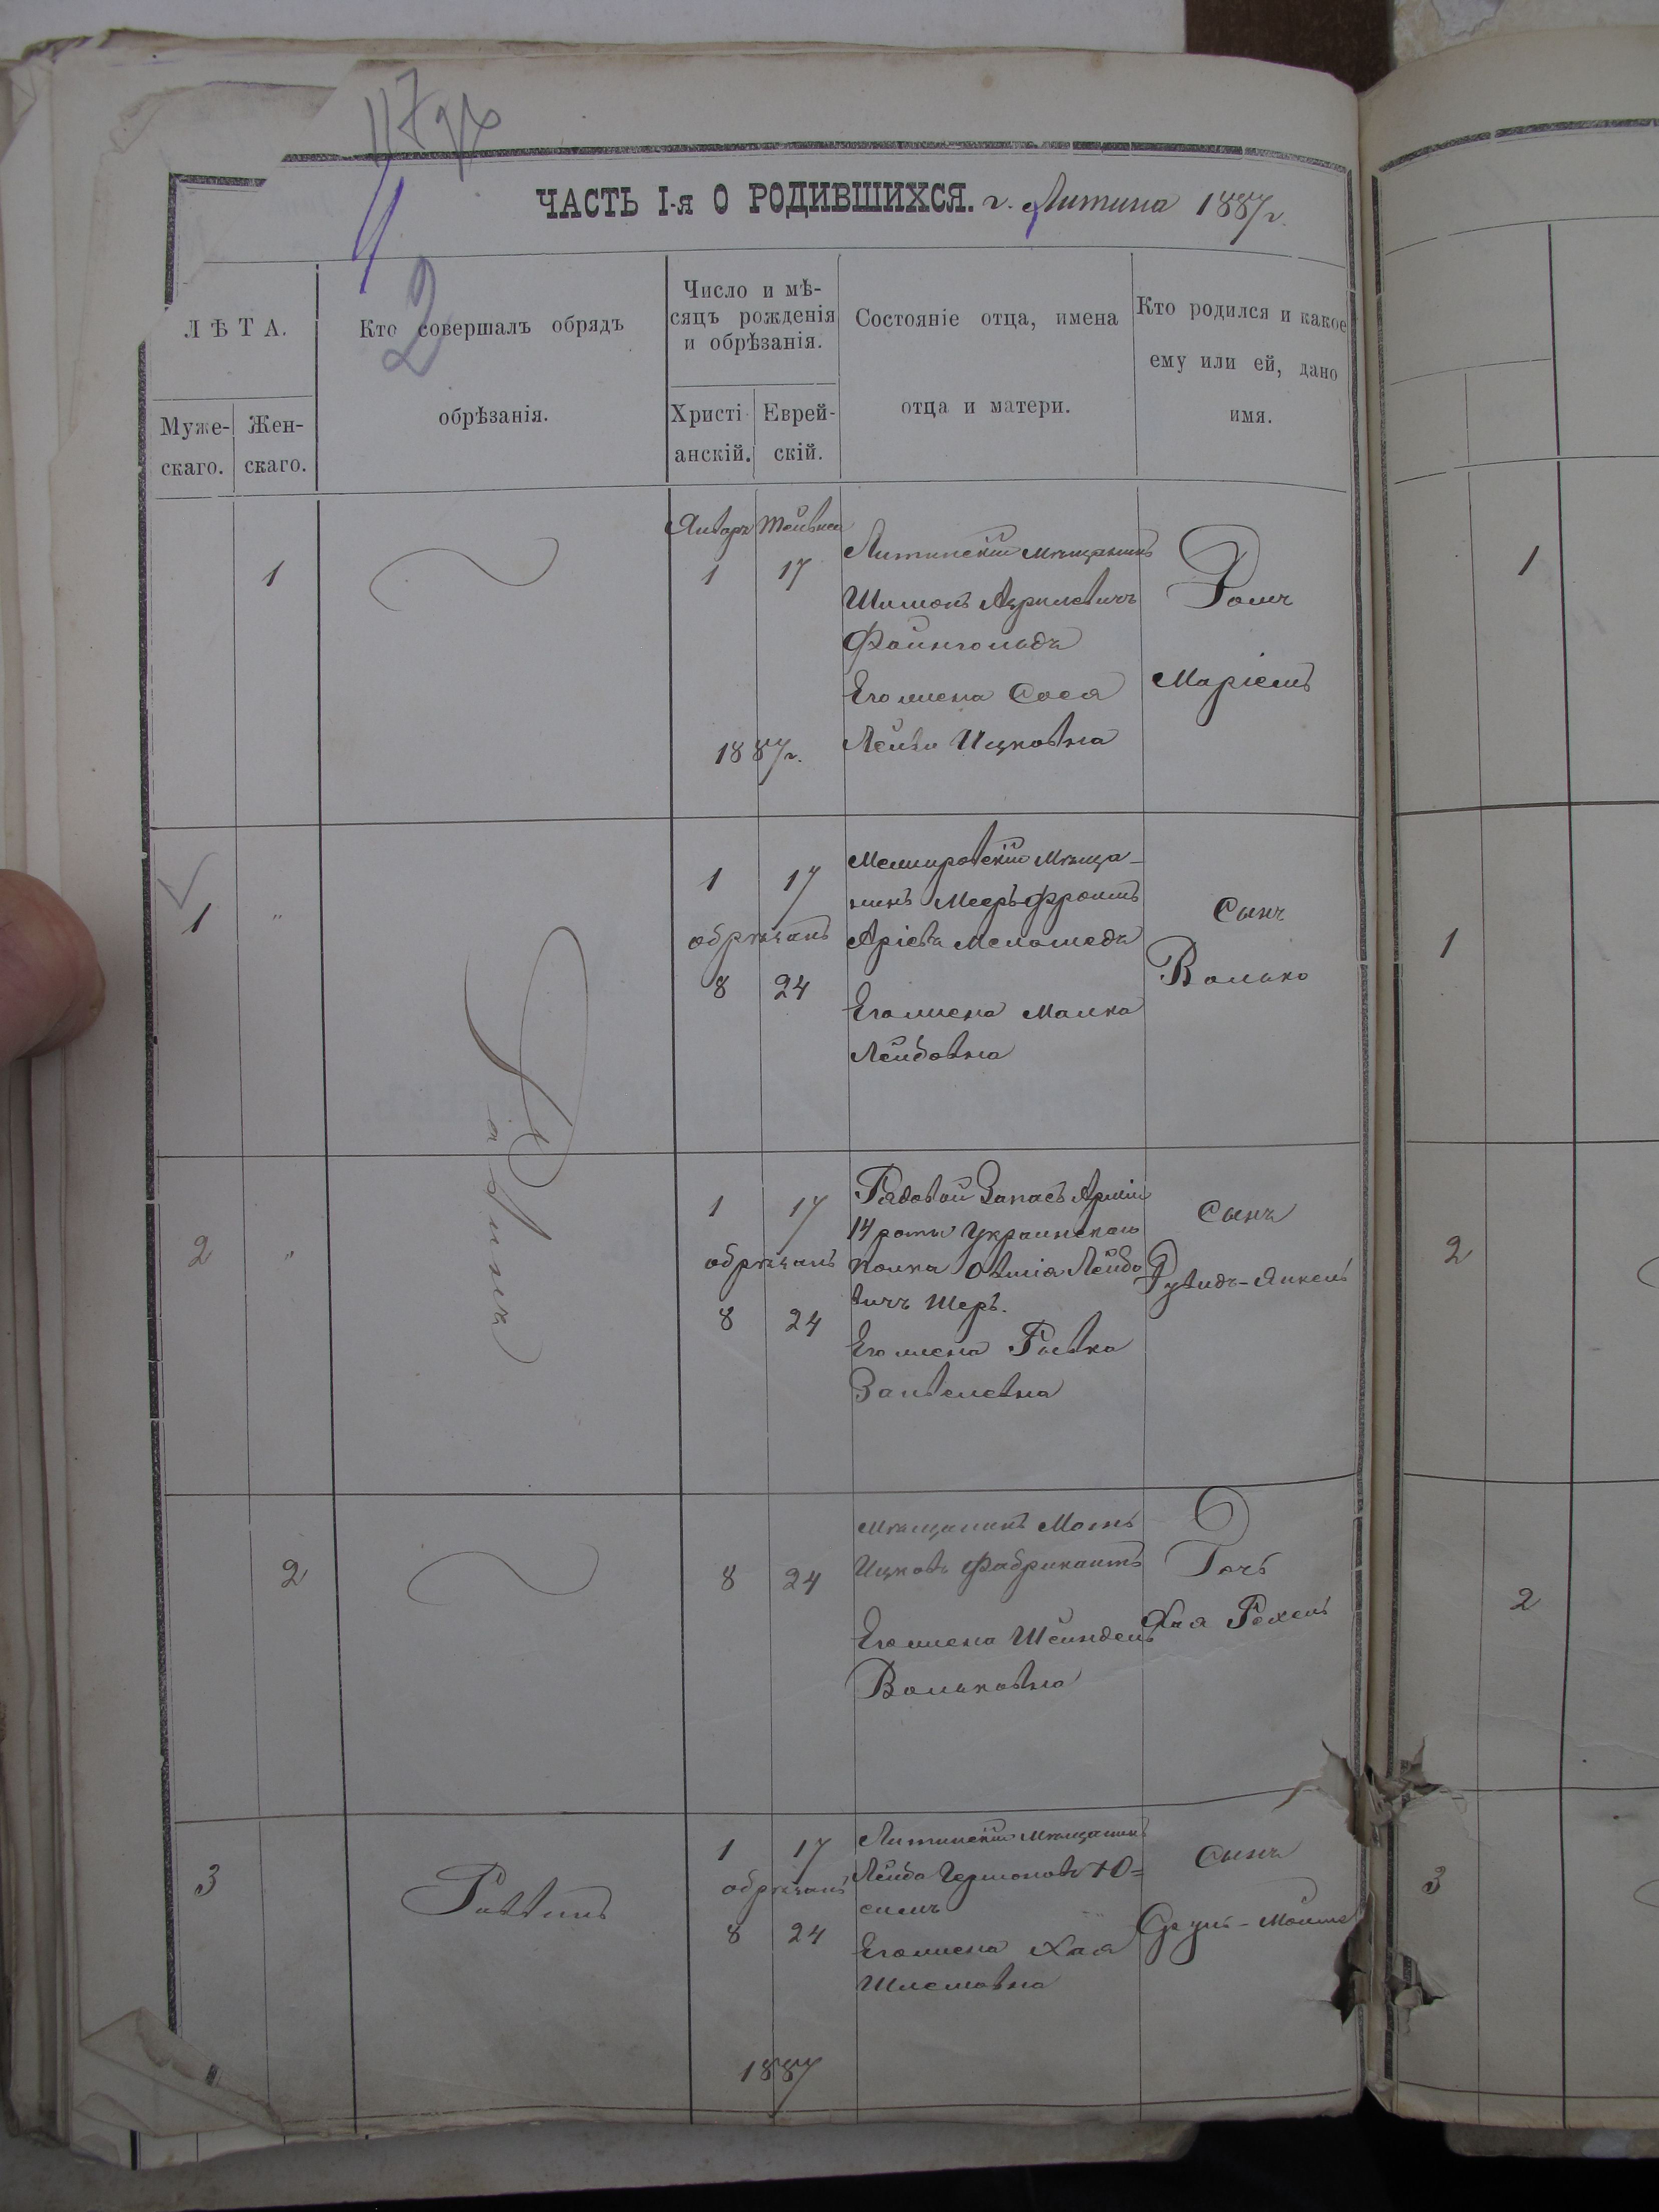 ЧАСТЬ I-я О РОДИВШИХСЯ. г. Литина 1887 г.
2
ЛѢТА.
Муже-
скаго.
Жен-
скаго.
Кто совершалъ обрядъ
обрѣзанія.
Число и мѣ-
сяцъ рожденія
и обрѣзанія.
Христі
анскій.
Еврей-
скій.
Состояніе отца, имена
отца и матери.
Кто родился и какое
ему или ей, дано
имя.
1
Январь
1
17
1887 г.
Литинскій мѣщанинъ
Шимонъ
Файнгольдъ
Его жена Сося
Лейзо Ицковна
Маріемъ
1
1 "
1 17
обрѣзанъ
8 24
Немировскій Мѣща-
нинъ Мееръ Фроимъ
Аріевъ Меламедъ
Его жена Малка
Лейбовна
Сынъ
Волько
1
2 "
1 17
обрѣзанъ
8 24
Рядовой Запаса Арміи
14 роты Украинскаго
полка Овшія Лейбо
вичъ Шеръ.
Его жена Ривка
Занвелевна
Сынъ
Дувидъ-Янкель
2
2
8 24
Мѣщанинъ
Ицковъ Фабрикантъ
Его жена Шейндель
Вольковна
Дочь
Хая Рехель
2
3
Раввинъ
1 17
обрѣзанъ
8 24
1887
Литинскій Мѣщанинъ
Лейба
Его жена Хая
Шлемовна
Сынъ
3